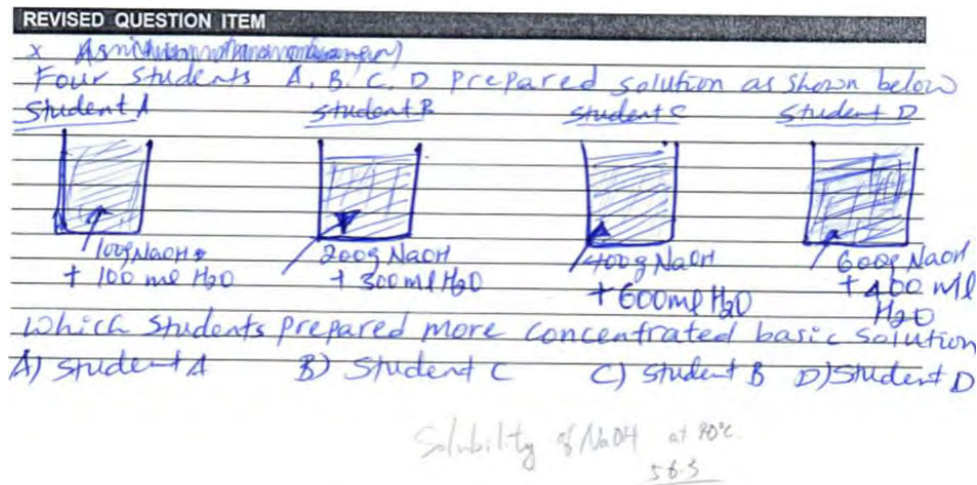 REVISED QUESTION ITEM
x
Four students A, B, C, D prepared solution as shown below
Student A Student B Student C Student D
100g NaOH + 100 ml H2O
200g NaOH + 300ml H2O
400g NaOH + 600ml H2O
600g NaOH + 400 ml H2O
Which Students prepared more concentrated basic solution
A) Student A B) Student C C) Student B D) Student D
Solubility of NaOH at 90°c
56.3